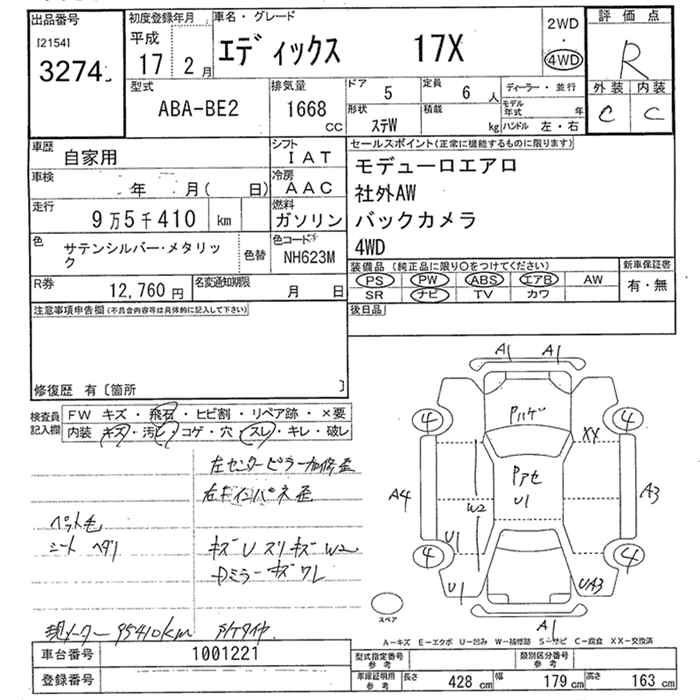 出品番号
[2154]
3274
初度登録年月
平成
17 2 月
車名・グレード
エディックス 17X
2WD
・
4WD
評価点
R
外装 内装
C C
型式
ABA-BE2
排気量
1668
CC
ドア
5
定員
6 人
形状
ステW
積載
kg
ディーラー・並行
モデル年式 年
ハンドル 左・右
車歴
自家用
シフト
IAT
車検
年 月( 日)
冷房
AAC
走行
9万5千410 km
燃料
ガソリン
色
サテンシルバー・メタリック
色替
色コード
NH623M
R券
12,760 円
名変通知期限
月 日
セールスポイント(正常に機能するものに限ります)
モデューロエアロ
社外AW
バックカメラ
4WD
装備品(純正品に限り○をつけてください)
PS PW ABS エアB AW
SR ナビ TV カワ
新車保証書
有・無
後日品
注意事項申告欄(不具合内容等は具体的に記入して下さい)
修復歴 有〔箇所 〕
検査員記入欄
FW キズ・飛石・ヒビ割・リペア跡・×要
内装 キズ・汚レ・コゲ・穴・スレ・キレ・破レ
左センターピラー加修歪
右Fインパネ歪
ペット毛
シート ヘタリ
キズU スリキズ W2
ミラー キズ ワレ
現メーター 95410km
A1 A1
4 4
Pハゲ
XX
Pアセ
U1
A4
W2
A3
U1
4 4
U1
UA3
A1
スペア
A-キズ E-エクボ U-凹み W-補修跡 S-サビ C-腐食 XX-交換済
車台番号 1001221
登録番号
型式指定番号
参考
類別区分番号
参考
車庫証明用
参考
長さ 428 cm 幅 179 cm 高さ 163 cm